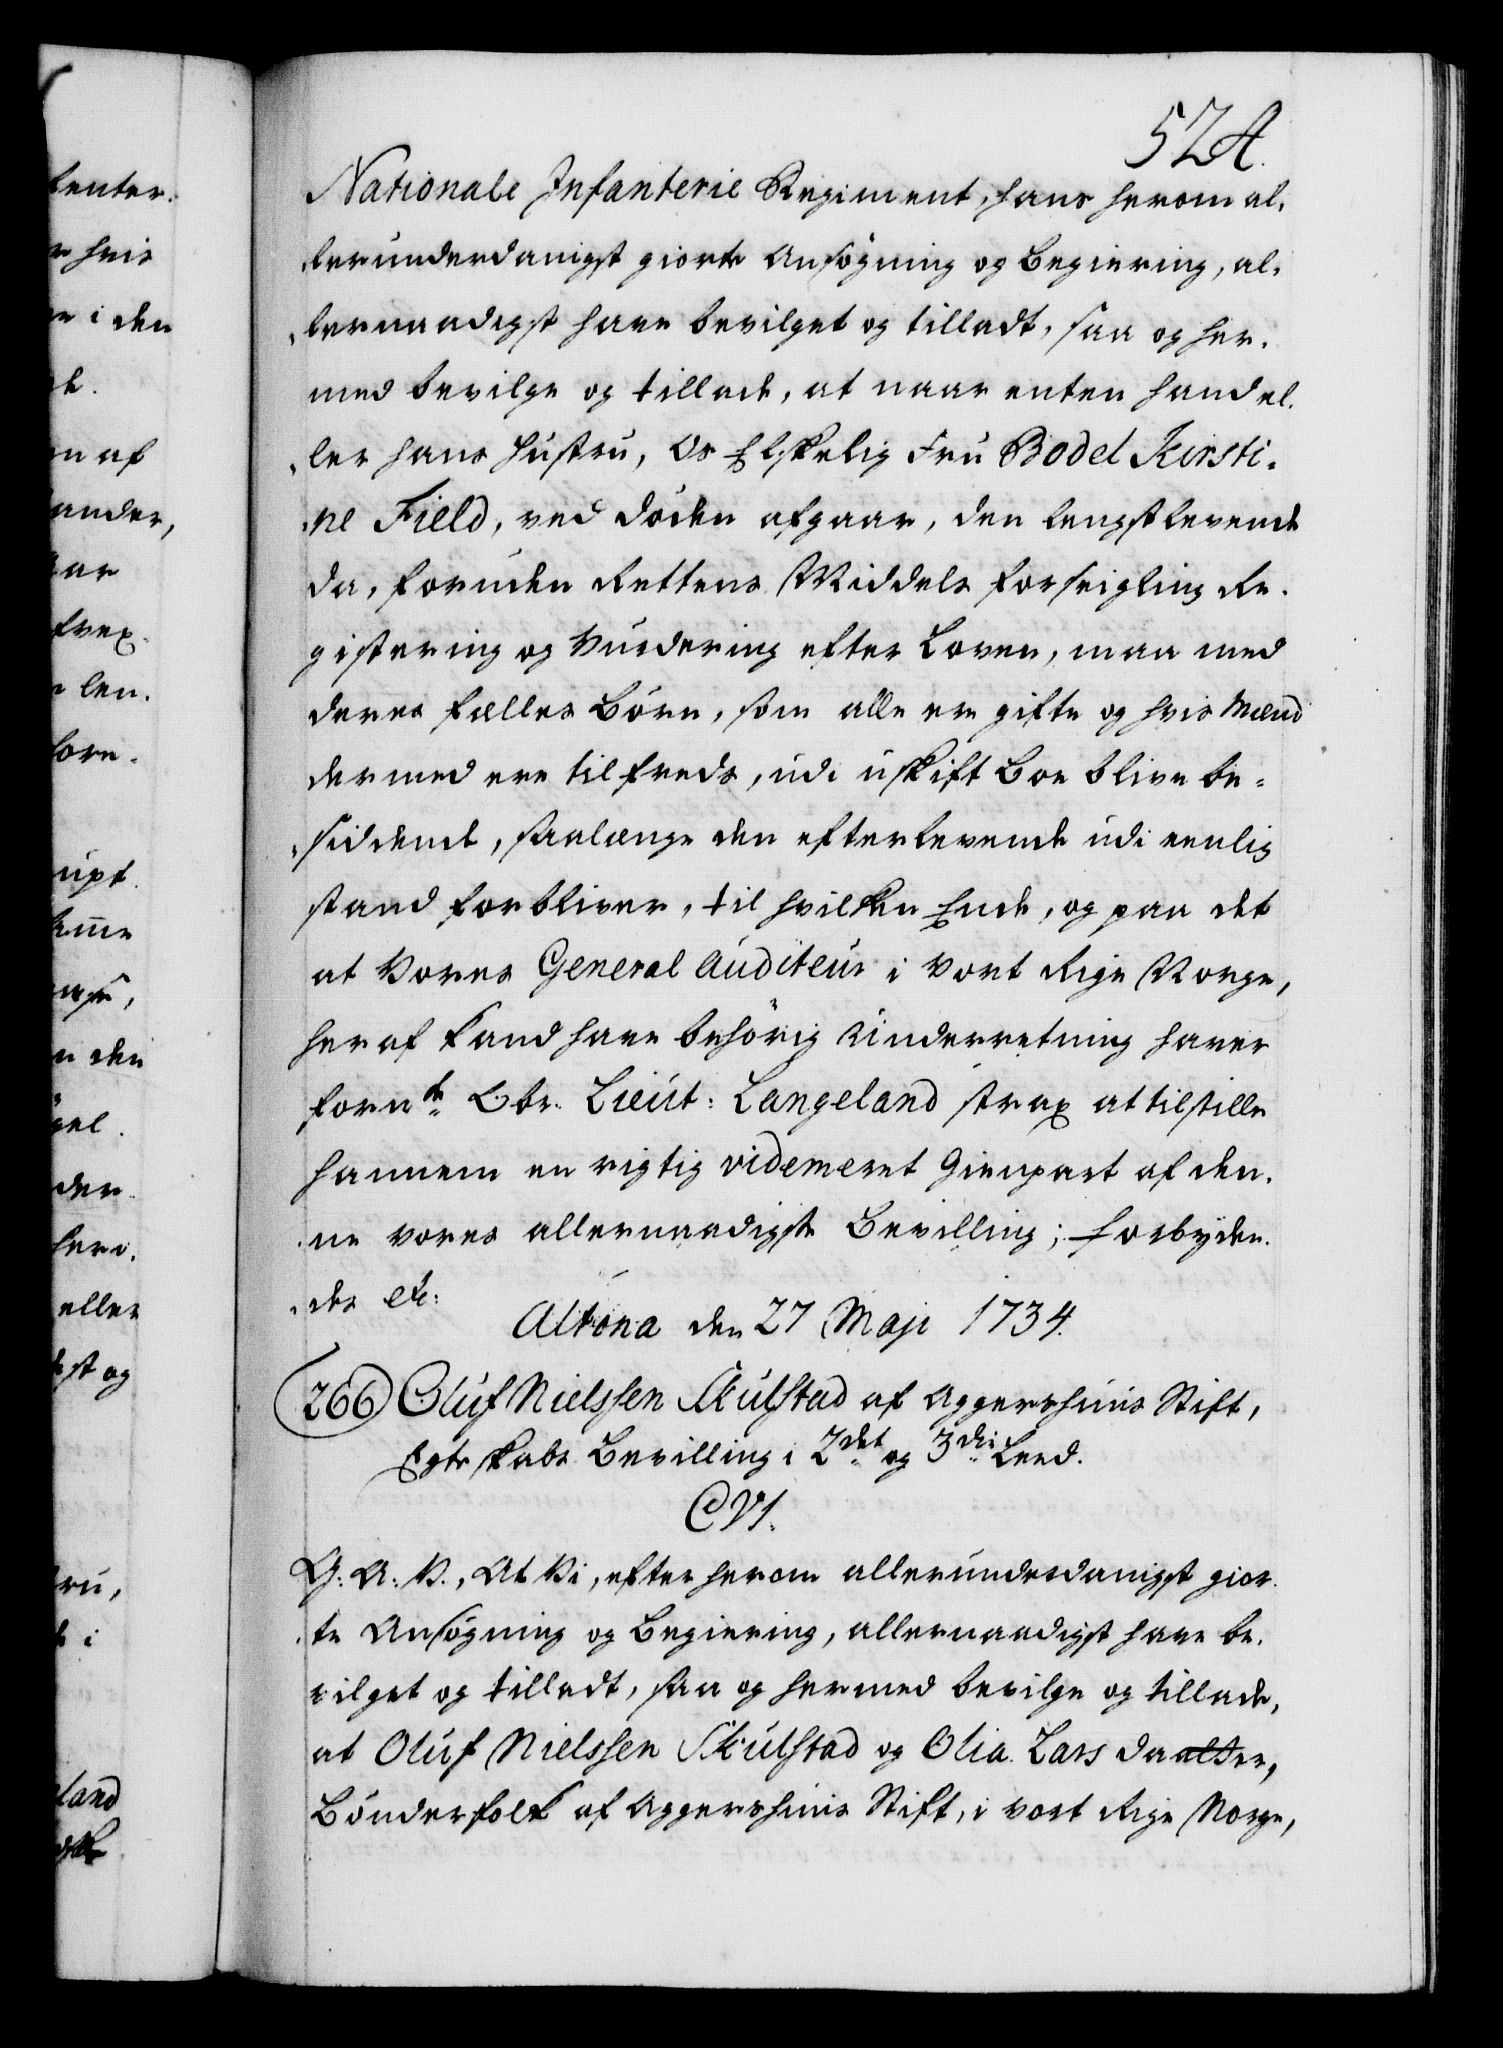 524.
Nationale Infanterie Regiment, hans herom al-
lerunderdanigst giorte Ansøgning og Begiering, al-
lernaadigst have bevilget og tilladt, saa og her-
med bevilge og tillade, at naar enten hand el-
ler hans Hustru, Os Elskelig Fru Bodel Kirsti-
ne Field, ved døden afgaar, den lengstlevende
da, foruden Rettens Middels forseigling Re-
gistering og Vurdering efter Loven, maa med
deres fælles Børn, som alle ere gifte og hvis Mænd
dermed ere tilfreds, udi uskift Boe blive be-
siddende, saalænge den efterlevende udi eenlig
stand forbliver, til hvilken Ende, og paa det
at Vores General Auditeur i Vort Rige Norge,
heraf kand have behørig Underretning haver
fornte Obr. Lieut: Langeland strax at tilstille
hannem en rigtig videmeret Gienpart af den-
ne vores allernaadigste Bevilling; forbyden-
des etc:
Altona den 27 Maji 1734.
266 Oluf Nielssen Skulstad af Aggershuus Stift,
Egteskabs Bevilling i 2det og 3die Leed.
C VI.
G: A: V., At Vi, efter herom allerunderdanigst gior-
te Ansøgning og Begiering, allernaadigst have be-
vilget og tilladt, saa og hermed bevilge og tillade,
at Oluf Nielssen Skulstad og Olia Lars daatter,
Bønderfolk af Aggershuus Stift, i vort Rige Norge,